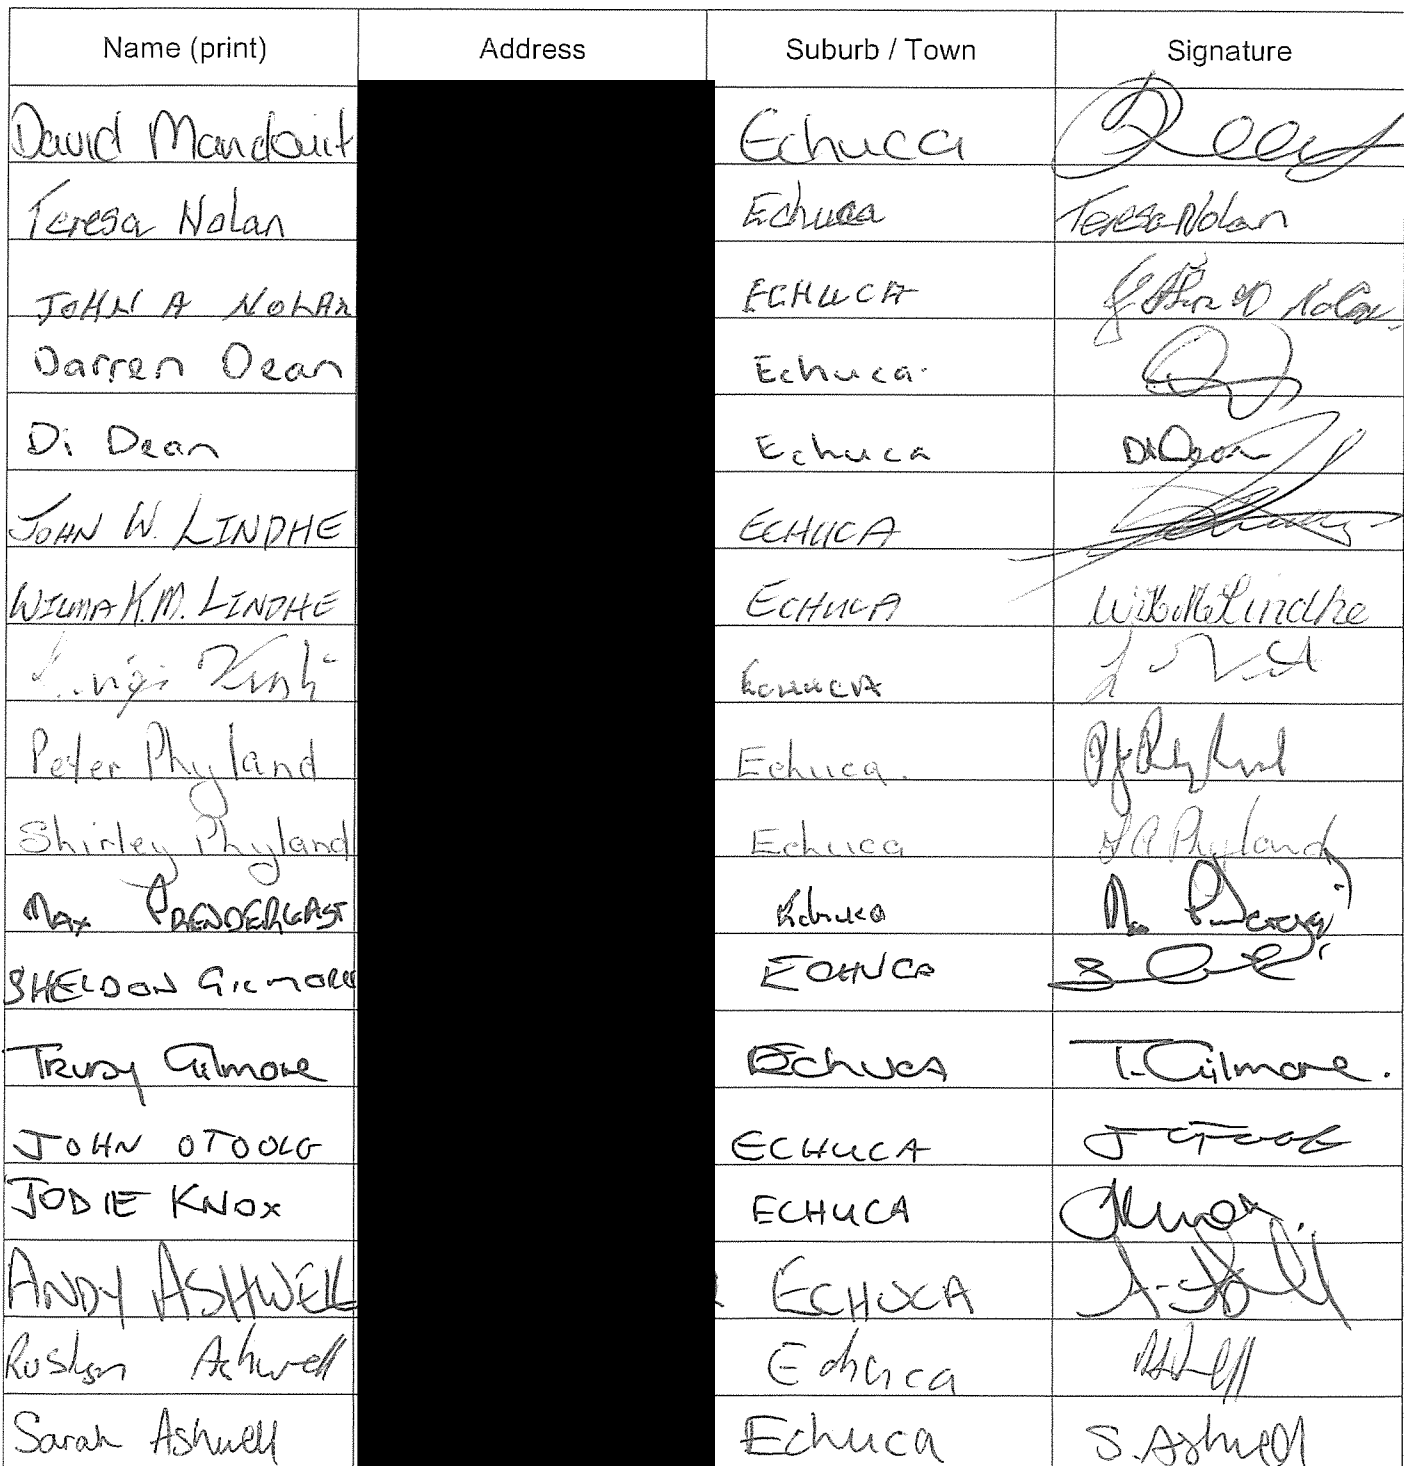 Name (print) Address Suburb / Town Signature
David Mandait Echuca
Teresa Nolan Echuca Teresa Nolan
JOHN A NOLAN ECHUCA Nolan
Darren Dean Echuca.
Di Dean Echuca Di Dean
JOHN W. LINDHE ECHUCA
WILMA K.M. LINDHE ECHUCA Lindhe
ECHUCA
Peter Phyland Echuca.
Shirley Phyland Echuca Phyland
MAX PRENDERGAST Echuca
SHELDON GILMORE ECHUCA
TRUDY Gilmore EchucA T. Gilmore.
JOHN OTOOLE ECHUCA
JODIE KNOX ECHUCA
ANDY ASHWELL ECHUCA
Ashwell Echuca
Sarah Ashwell Echuca S. Ashwell